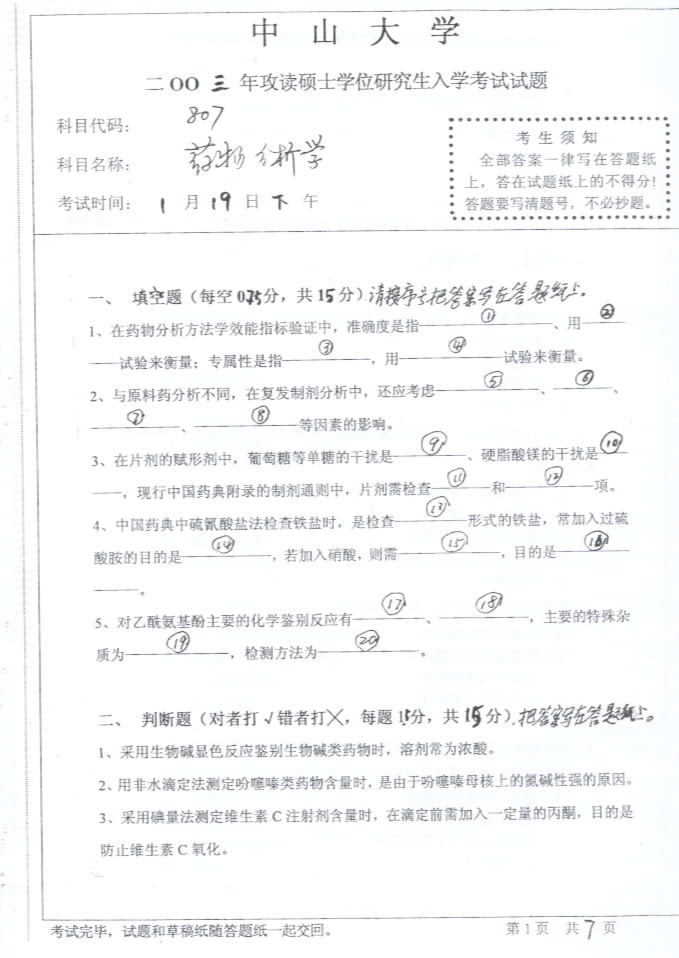 中 山 大 学
二OO 三 年攻读硕士学位研究生入学考试试题
科目代码: 807
科目名称: 药物分析学
考试时间: 1 月 19 日 下 午
考 生 须 知
全部答案一律写在答题纸
上，答在试题纸上的不得分!
答题要写清题号，不必抄题。
一、 填空题（每空 0.75分，共 15 分）请按序号把答案写在答题纸上。
1、在药物分析方法学效能指标验证中，准确度是指 ① 、用 ②
试验来衡量；专属性是指 ③ ，用 ④ 试验来衡量。
2、与原料药分析不同，在复发制剂分析中，还应考虑 ⑤ 、 ⑥ 、
⑦ 、 ⑧ 等因素的影响。
3、在片剂的赋形剂中，葡萄糖等单糖的干扰是 ⑨ 、硬脂酸镁的干扰是 ⑩
，现行中国药典附录的制剂通则中，片剂需检查 ⑪ 和 ⑫ 项。
4、中国药典中硫氰酸盐法检查铁盐时，是检查 ⑬ 形式的铁盐，常加入过硫
酸胺的目的是 ⑭ ，若加入硝酸，则需 ⑮ ，目的是 ⑯
。
5、对乙酰氨基酚主要的化学鉴别反应有 ⑰ 、 ⑱ ，主要的特殊杂
质为 ⑲ ，检测方法为 ⑳ 。
二、 判断题（对者打 √ 错者打╳，每题 1.5分，共 15 分）.把答案写在答题纸上。
1、采用生物碱显色反应鉴别生物碱类药物时，溶剂常为浓酸。
2、用非水滴定法测定吩噻嗪类药物含量时，是由于吩噻嗪母核上的氮碱性强的原因。
3、采用碘量法测定维生素 C 注射剂含量时，在滴定前需加入一定量的丙酮，目的是
防止维生素 C 氧化。
考试完毕，试题和草稿纸随答题纸一起交回。 第 1 页 共 7 页